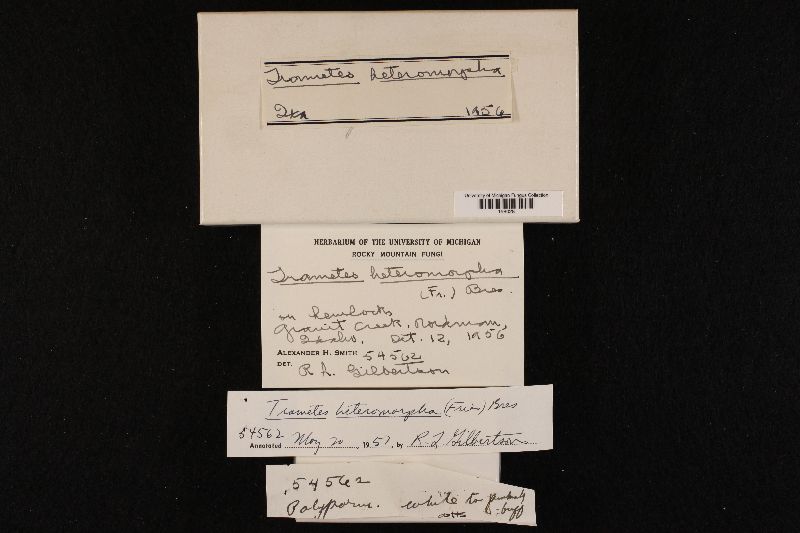 Trametes heteromorpha
1956
University of Michigan Fungus Collection
HERBARIUM OF THE UNIVERSITY OF MICHIGAN
ROCKY MOUNTAIN FUNGI
Trametes heteromorpha
(Fr.) Bres.
on hemlocks
Granit Creek, Nordman,
Idaho, Oct. 12, 1956
ALEXANDER H. SMITH 54562
DET. R L Gilbertson
Trametes heteromorpha (Fries) Bres
54562
Annotated May 20, 1957, by R L Gilbertson
54562
Polyporus. white to
buff